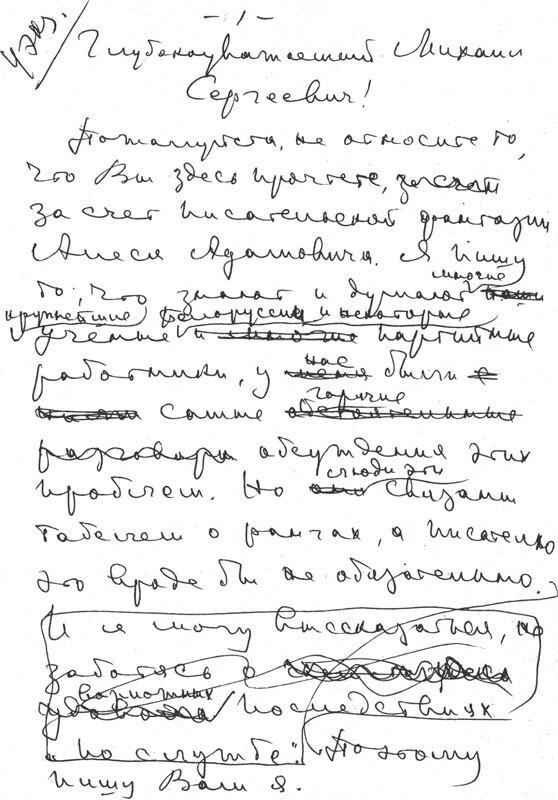 - 1 -
4 экз.
Глубокоуважаемый Михаил
Сергеевич!
Пожалуйста, не относите то,
что Вы здесь прочтете, за счет
за счет писательской фантазии
Алеся Адамовича. Я пишу
многие
то, что знают и думают наши
крупнейшие белорусские и некоторые
ученые и многие партийные
работники, у меня были
нас
самые
горячие
разговоры обсуждения этих
проблем. Но они связаны
люди эти
табелем о рангах, а писателю
это вроде бы не обязательно.
И я могу высказаться, не
заботясь о
возможных
последствиях
"по службе". Поэтому
пишу Вам я.